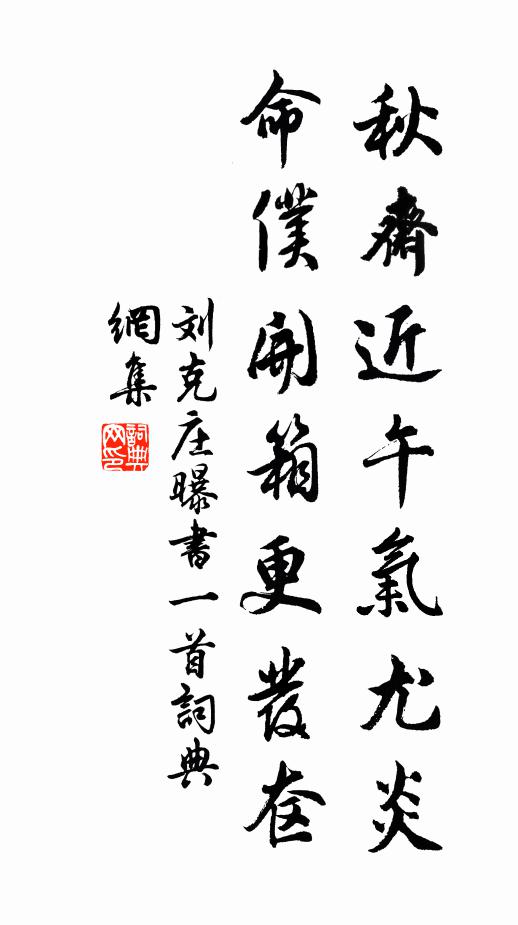 秋齋近午氣尤炎
命僕開箱更發奁
刘克庄曝書一首詞典
網集
詞典
网印